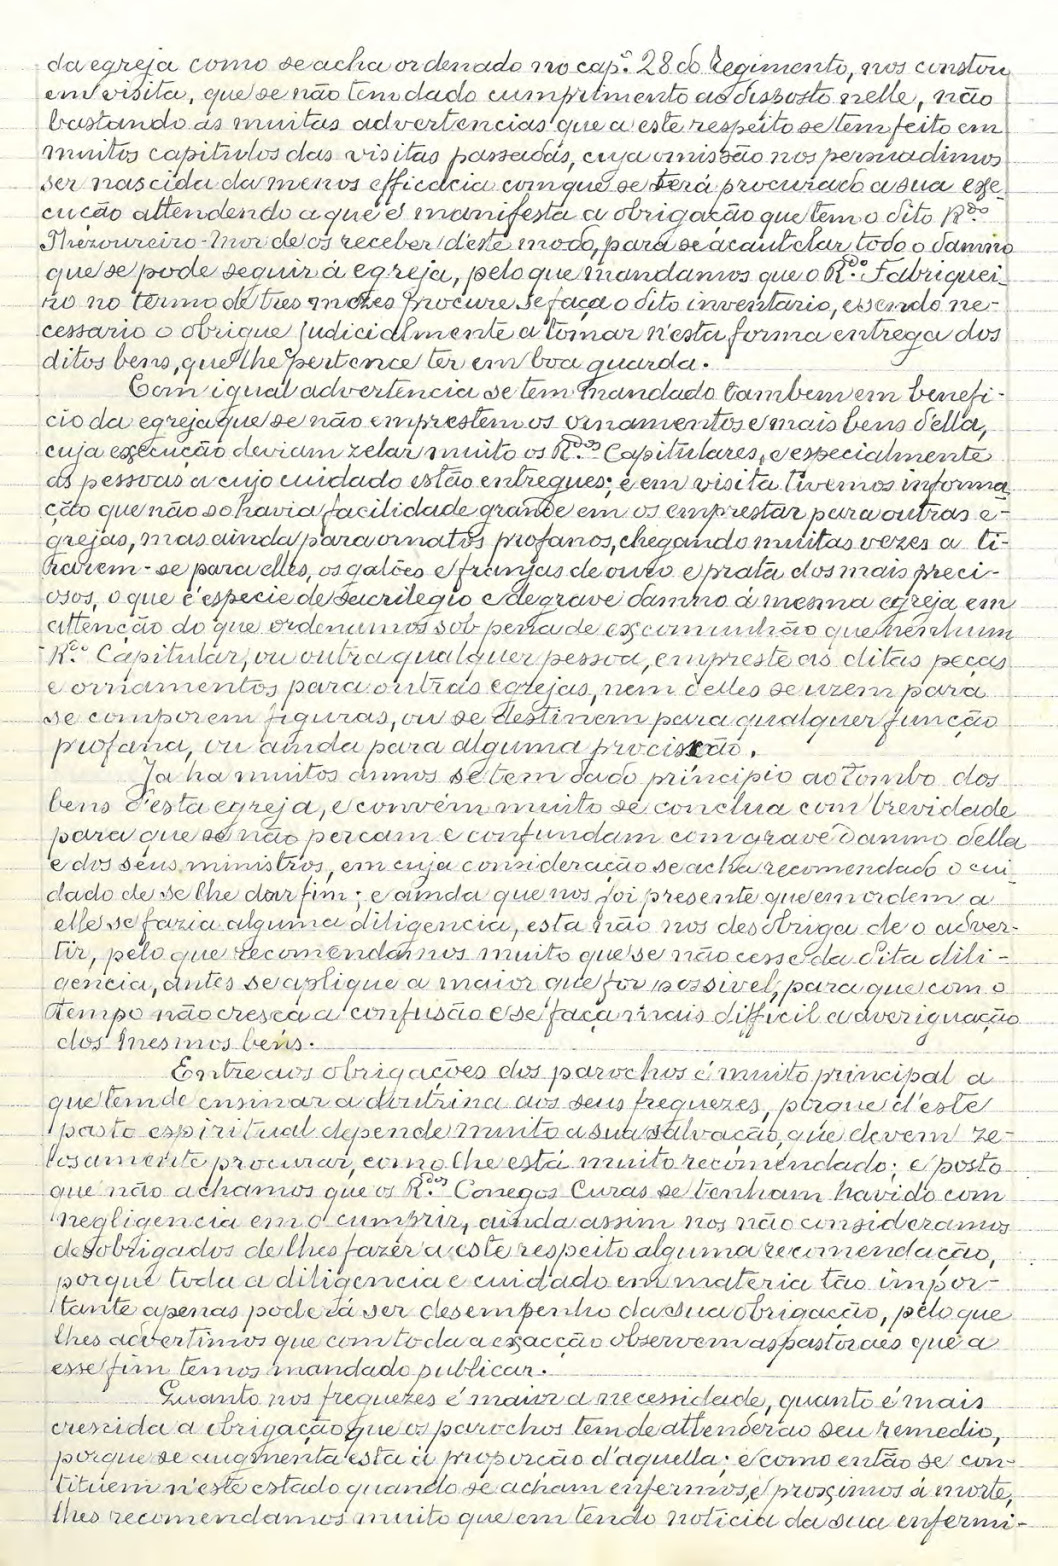 da egreja como se acha ordenado no cap.º 28 do Regimento, nos constou
em visita, que se não tem dado cumprimento ao disposto nelle, não
bastando as muitas advertencias que a este respeito se tem feito em
muitos capitulos das visitas passadas, cuja omissão nos persuadimos
ser nascida da menos efficacia com que se terá procurado a sua exe-
cução attendendo a que é manifesta a obrigação que tem o dito R.do
Thezoureiro-Mor de os receber d'este modo, para se acautelar todo o damno
que se pode seguir á egreja, pelo que mandamos que o R.do Fabriquei-
ro no termo de tres mezes procure se faça o dito inventario, e sendo ne-
cessario o obrigue judicialmente a tomar n'esta forma entrega dos
ditos bens, que lhe pertence ter em boa guarda.
Com igual advertencia se tem mandado tambem em benefi-
cio da egreja que se não emprestem os ornamentos e mais bens d'ella,
cuja execução deviam zelar muito os R.dos Capitulares, e especialmente
as pessoas a cujo cuidado estão entregues; e em visita tivemos informa
ção que não so havia facilidade grande em os emprestar para outras e-
grejas, mas ainda para ornatos profanos, chegando muitas vezes a ti-
rarem-se para elles, os galões e franjas de ouro e prata dos mais preci-
osos, o que é especie de sacrilegio e de grave damno á mesma egreja, em
attenção do que ordenamos sob pena de excomunhão que nenhum
R.do Capitular, ou outra qualquer pessoa, empreste as ditas peças
e ornamentos para outras egrejas, nem d'elles se uzem para
se comporem figuras, ou se destinem para qualquer funcção
profana, ou ainda para alguma procissão.
Ja ha muitos annos se tem dado principio ao Tombo dos
bens d'esta egreja, e convém muito se conclua com brevidade
para que se não percam e confundam com grave damno della
e dos seus ministros, em cuja consideração se acha recomendado o cui-
dado de se lhe dar fim; e ainda que nos foi presente que em ordem a
elle se fazia alguma diligencia, esta não nos desobriga de o adver-
tir, pelo que recomendamos muito que se não cesse da dita dili-
gencia, antes se aplique a maior que for possivel, para que com o
tempo não cresça a confusão e se faça mais difficil a averiguação
dos mesmos bens.
Entre as obrigações dos parochos é muito principal a
que tem de ensinar a doutrina aos seus freguezes, porque d'este
pasto espiritual depende muito a sua salvação, que devem ze-
losamente procurar, como lhe está muito recomendado; e posto
que não achamos que os R.dos Conegos Curas se tenham havido com
negligencia em o cumprir, ainda assim nos não consideramos
desobrigados de lhes fazer a este respeito alguma recomendação,
porque toda a diligencia e cuidado em materia tão impor-
tante apenas poderá ser desempenho da sua obrigação, pelo que
lhes advertimos que com toda a exacção observem as pastoraes que a
esse fim temos mandado publicar.
Quanto nos freguezes é maior a necessidade, quanto é mais
crescida a obrigação que os parochos tem de attender ao seu remedio,
porque se augmenta esta á proporcão d'aquella; e como então se con-
tituem n'este estado quando se acham enfermos, e proximos á morte,
lhes recomendamos muito que em tendo noticia da sua enfermi-